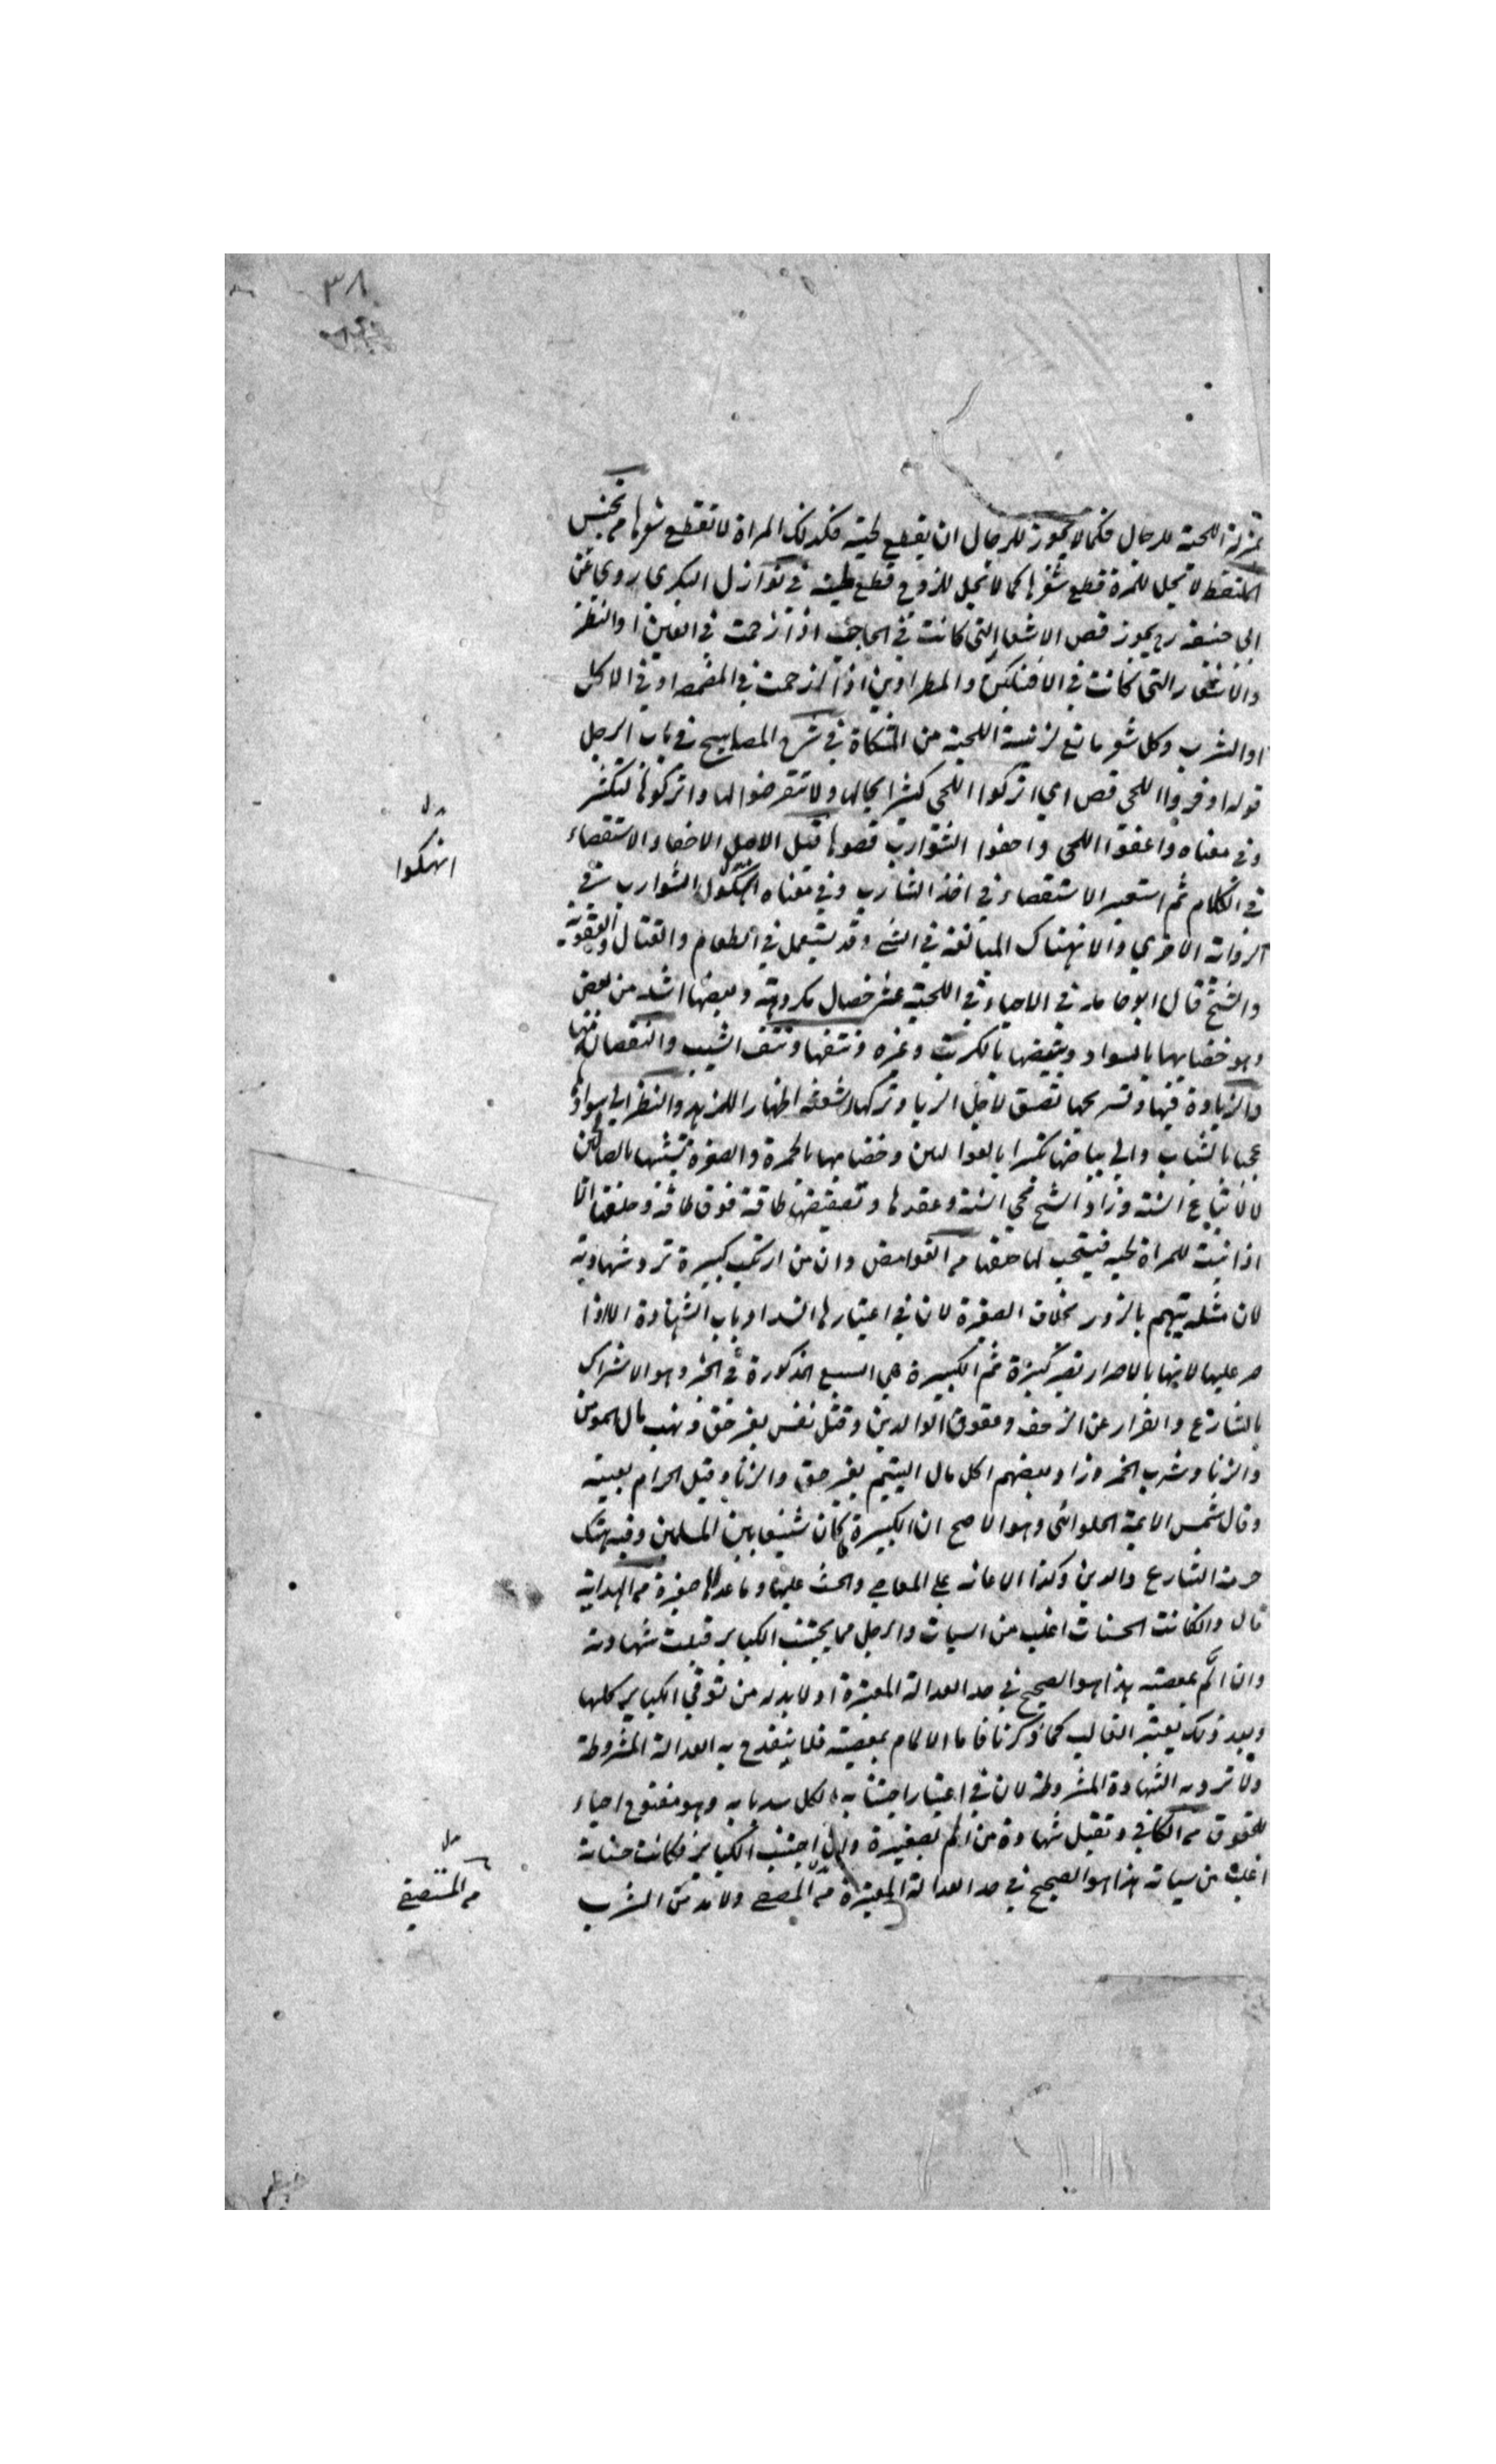 ٣٨
بمنزلة اللحية للرجال فكما لا يجوز للرجال ان يقطع لحيته فكذلك المراة لا تقطع شعرها من تجنيس
الملتقط لا يحل للمرة قطع شعرها كما لا يحل للزوج قطع لحيته في نوازل البكري روي عن
ابي حنيفة رح يجوز قص الاشعار التي كانت في الحاجب اذا زحمت في العين او النظر
والاشعار التي كانت في الافنكين والمطراوين اذا ازحمت في المضمضة او في الاكل
او الشرب وكل شعر مانع لزينة اللحية من المشكاة في شرح المصابيح في باب الرجل
قوله اوفروا اللحى قص اي اتركوا اللحى كثيرا بحالها ولا تتعرضوا لها واتركوها لتكثر
وفي معناه واعفوا اللحى واحفوا الشوارب قصوها قيل الاصل الاحفاء الاستقصاء
انهكوا
في الكلام ثم استعير الاستقصاء في اخذ الشارب وفي معناه انهكوا الشوارب في
الرواية الاخري والانهتاك المبالغة في الشئ وقد يستعمل في الطعام والقتال والعقوبة
والشيخ قال ابو حامد في الاحياء في اللحية عشر خصال مكروهة وبعضها اشد من بعض
وهو خضابها بالسواد وتبييضها بالكبريت وغيره ونتفها ونتف الشيب والنقصان منها
والزيادة فيها وتسريحها تصنع لاجل الريا وتركها شعثة اظهارا للزهد والنظر الى سوادها
عجبا بالشباب والى بياضها تكبرا بالعوالين وخضابها بالحمرة والصفرة تشبها بالصالحين
لا لاتباع السنة وزاد الشيخ محي السنة وعقدها وتصفيفها طاقة فوق طاقة وحلقها الا
اذا نبت للمراة لحية فيستحب لها حلقها من الغوامض وان من ارتكب كبيرة ترد شهادته
لان مثله يتهم بالزور بخلاف الصغيرة لان في اعتبارها انسداد باب الشهادة الا اذا
صر عليها لانها بالاصرار تصير كبيرة ثم الكبيرة هي السبع المذكورة في الخبر وهو الاشراك
بالشارع والفرار عن الزحف وعقوق الوالدين وقتل نفس بغير حق ونهب مال المومن
والزنا وشرب الخمر وزاد بعضهم اكل مال اليتيم بغير حق والزنا وقيل الحرام بعينه
وقال شمس الايمة الحلوائي وهو الاصح ان الكبيرة ما كان شنيعا بين المسلمين وفيه هتك
حرمة الشارع والدين وكذا الاعانة على المعاصي والحث عليها وما عداها صغيرة من الهداية
قال وان كانت الحسنات اغلب من السيات والرجل مما يجتنب الكباير قبلت شهادته
وان الم بمعصية هذا هو الصحيح في حد العدالة المعتبرة اذ لا بد له من توقي الكباير كلها
وبعد ذلك يعتبر الغالب كما ذكرنا فاما الالمام بمعصية فلا ينقدح به العدالة المشروطة
ولا ترد به الشهادة المشروطة لان في اعتبار اجتنابه الكل سد بابه وهو مفتوح احياء
للحقوق من الكافي وتقبل شهادة من الم بصغيرة وان اجتنب الكباير فكانت حسناته
اغلب من سياته هذا هو الصحيح في حد العدالة المعتبرة من المصفى ولا بد من الشرب
من المستصفى